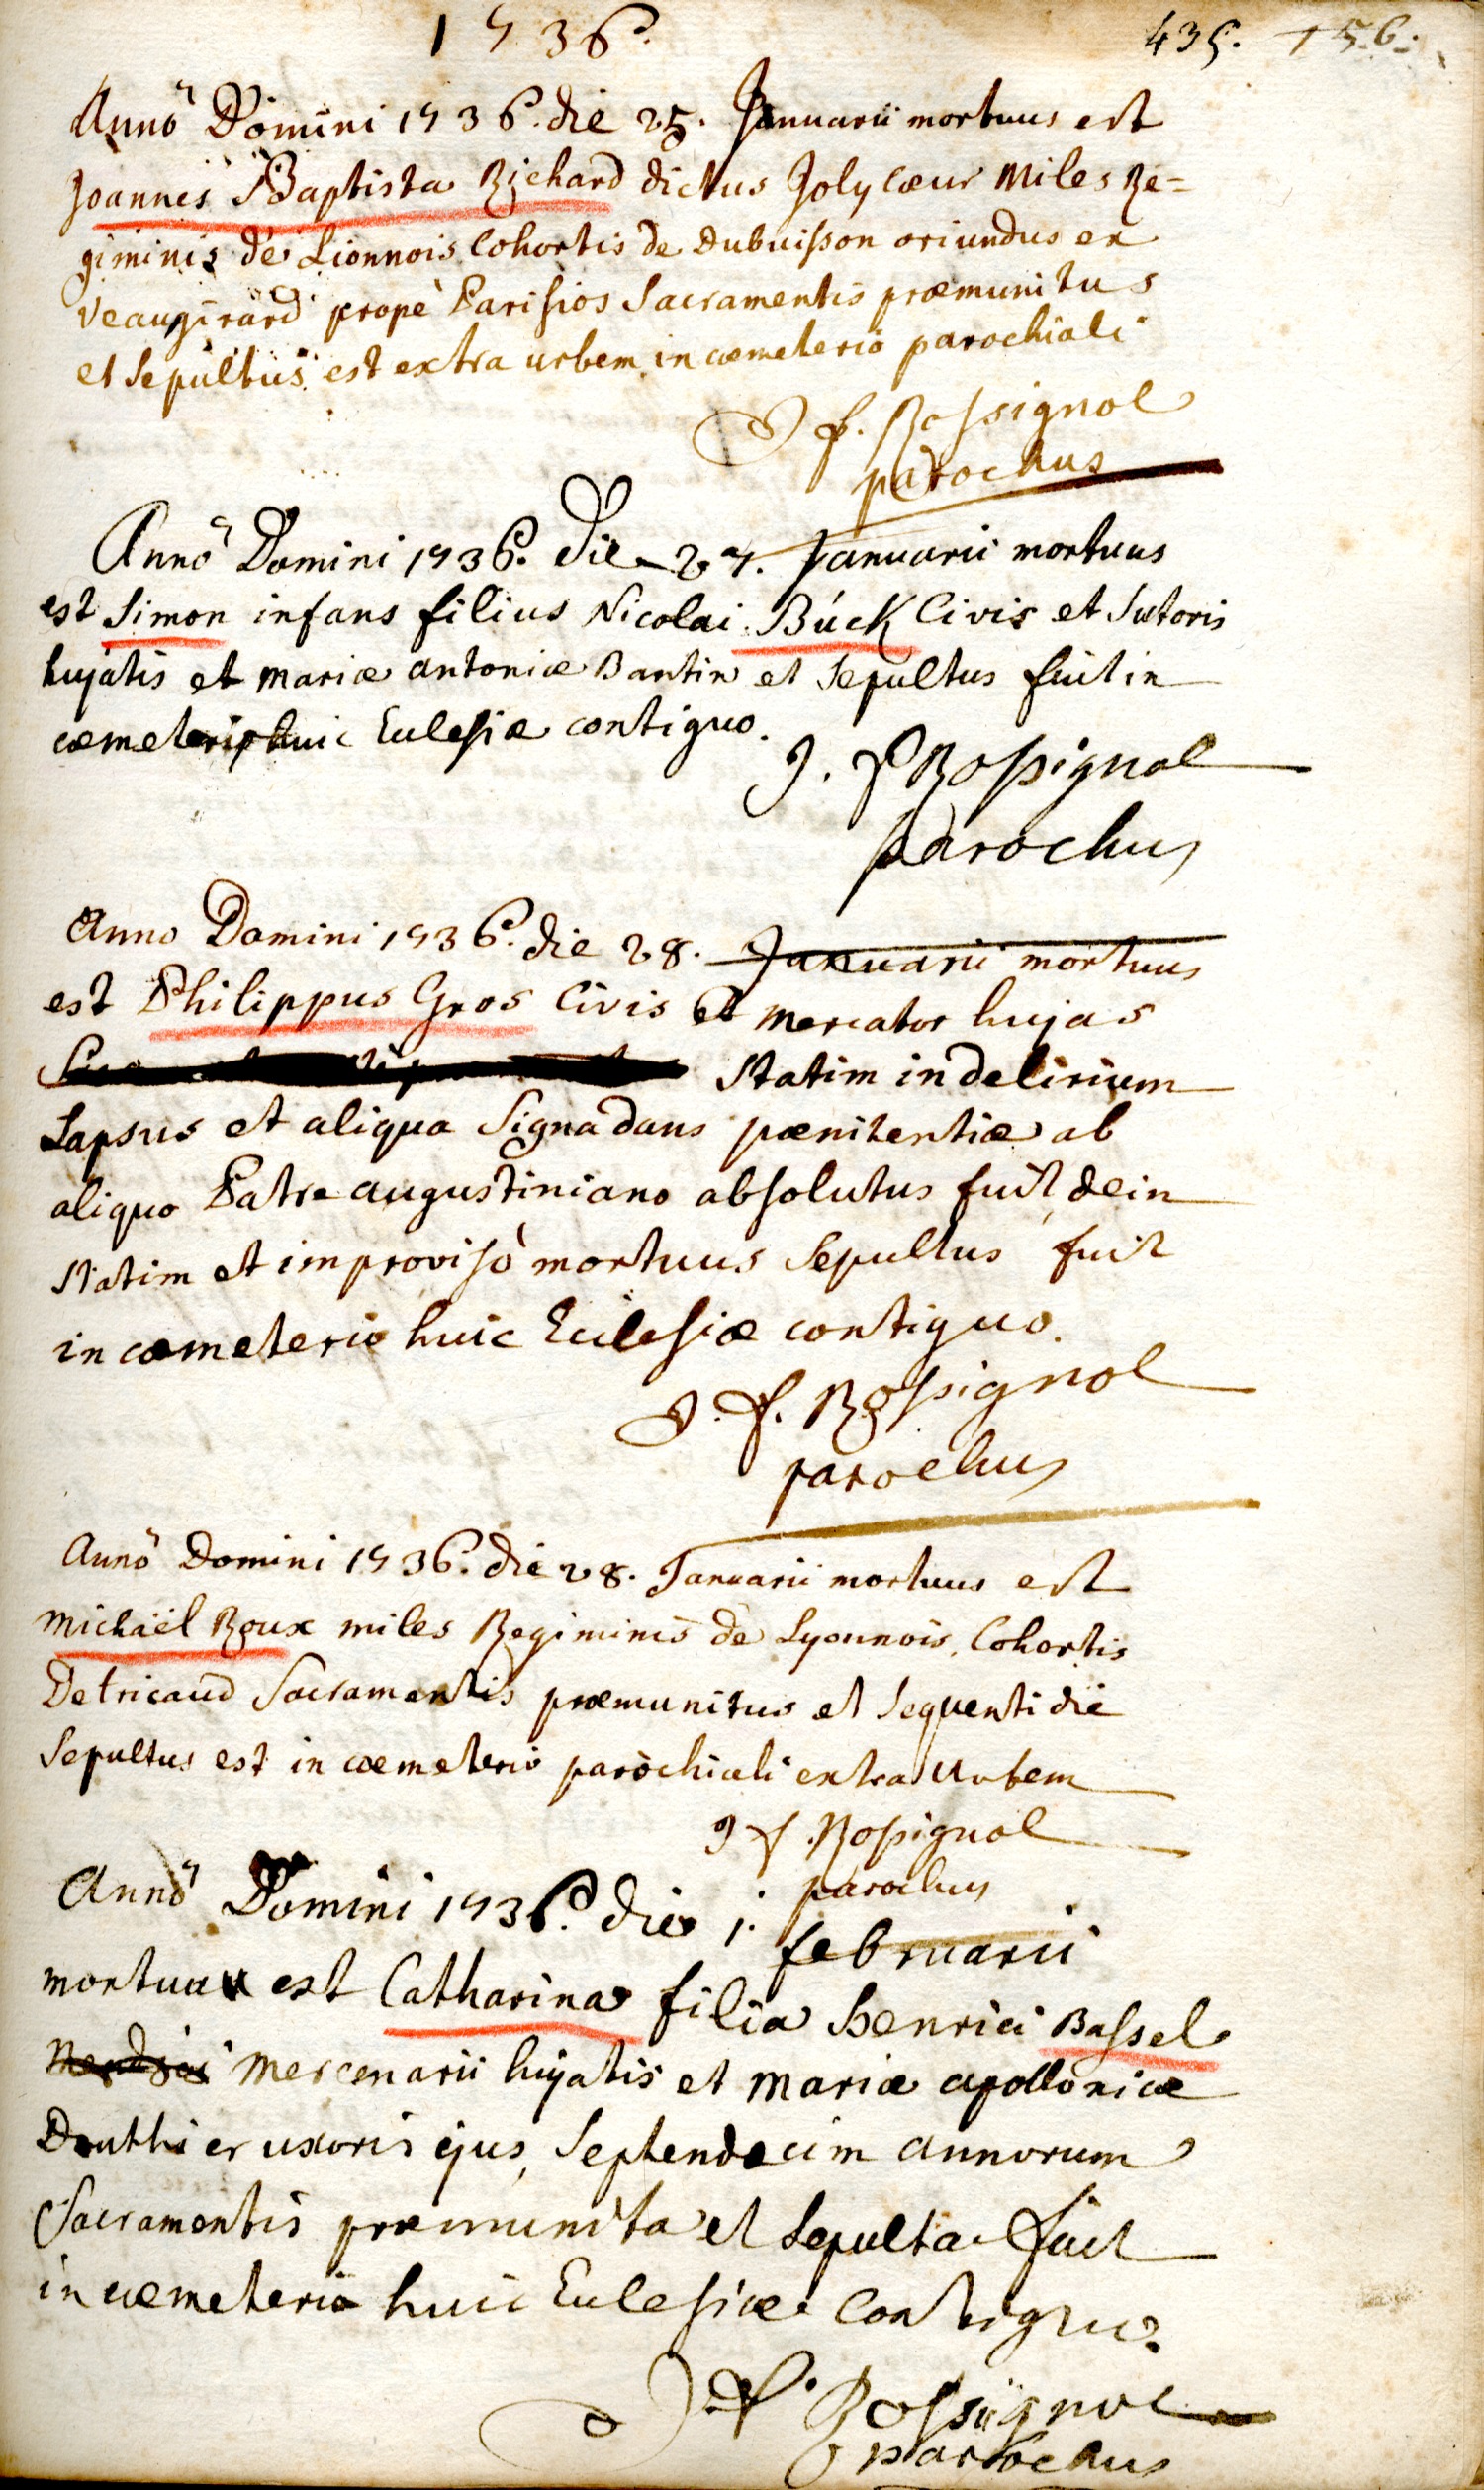 1736.
435. 156.
Anno Domini 1736. die 25. Januarii mortuus est
Joannes Baptista Richard dictus Joly cœur Miles Re=
giminis de Lionnois Cohortis de Dubuisson oriundus ex
Veaugirard prope Parisios Sacramentis præmunitus
et Sepultus est extra urbem in cœmeterio parochiali
J f. Rossignol
parochus
Anno Domini 1736. Die 27. Januarii mortuus
est Simon infans filius Nicolai Búck Civis et Sutoris
hujatis et mariæ antoniæ Bantin et Sepultus fuit in
cœmeterio huic Ecclesiæ contiguo.
J. f Rossignol
parochus
Anno Domini 1736. die 28. Januarii mortuus
est Philippus Gros Civis et mercator hujas
Statim in delirium
Lapsus et aliqua Signa dans pœnitentiæ ab
aliquo Patre augustiniano absolutus fuit, dein
statim et improvisò mortuus Sepultus fuit
in cœmeterio huic Ecclesiæ contiguo.
J. f. Rossignol
parochus
Anno Domini 1736. die 28. Januarii mortuus est
michaël Roux miles Regiminis de Lyonnois, Cohortis
Detricaud Sacramentis præmunitus et Sequenti die
Sepultus est in cœmeterio parochiali extra Urbem
J f. Rossignol
parochus
Anno Domini 1736. die j. februarii
mortua est Catharina filia henrici Bassel
mercenarii hujatis et mariæ apolloniæ
Douthier uxoris ejus, Septendecim annorum
Sacramentis præmunita et Sepulta fuit
in cœmeterio huic Ecclesiæ Contiguo.
J. f. Rossignol
parochus